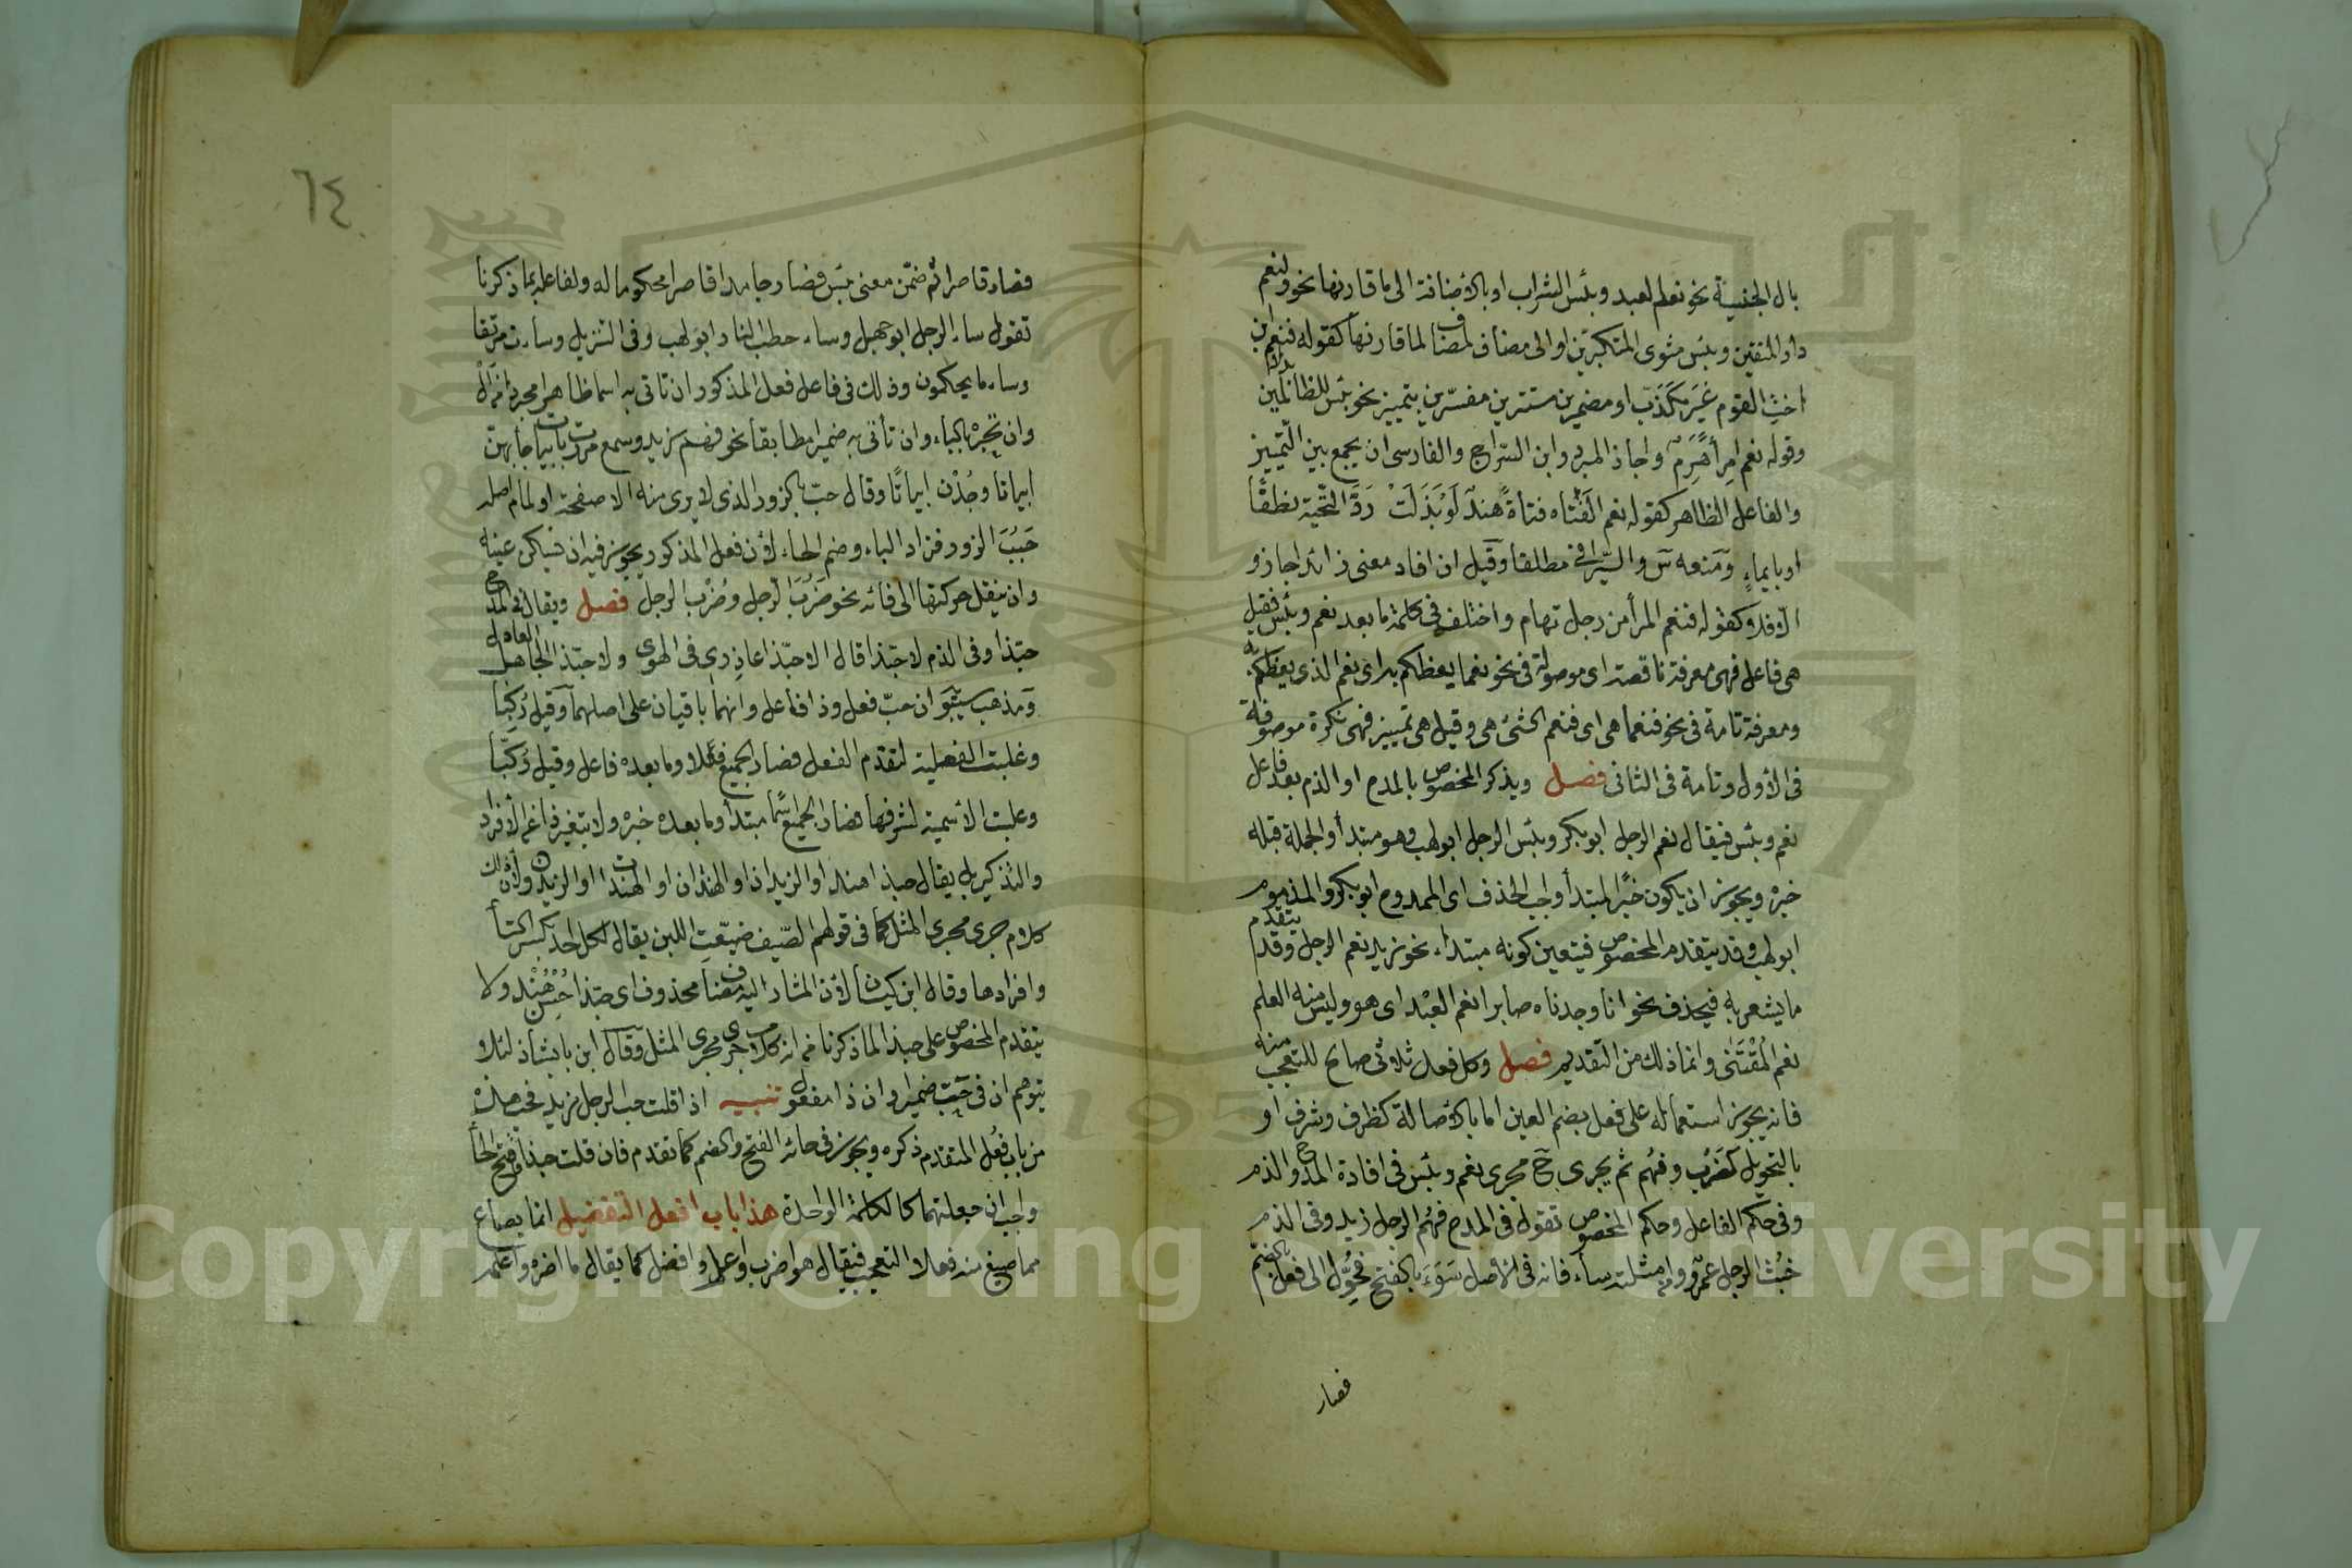 بال الجنسية نحو نعم العبد وبئس الشراب او بالاضافة الى ما قارنها نحو ولنعم
دار المتقين وبئس مثوى المتكبرين او الى مضاف لمضاف لما قارنها كقوله فنعم ابن
اخت القوم غير مكذب او مضمرين مستترين مفسرين بتمييز نحو بئس للظالمين بدلا
وقوله نعم امرأ هرم واجاز المبرد وابن السراج والفارسى ان يجمع بين التمييز
والفاعل الظاهر كقوله نعم الفتاه فتاة هند لو بذلت رد التحية نطقا
او بايماء ومنعه س والسيرافى مطلقا وقيل ان افاد معنى زائدا جاز و
الا فلا كقوله فنعم المرأ من رجل تهام واختلف فى كلمة ما بعد نعم وبئس فقيل
هى فاعل فهى معرفة ناقصة اى موصولة فى نحو نعما يعظكم به اى نعم الذى يعظكم به
ومعرفة تامة فى نحو فنعما هى اى فنعم الشئ هى وقيل هى تمييز فهى نكرة موصوفة
فى الاول وتامة فى الثانى فصل ويذكر المخصوص بالمدح او الذم بعد فاعل
نعم وبئس فيقال نعم الرجل ابو بكر وبئس الرجل ابو لهب وهو مبتدأ والجملة قبله
خبره ويجوز ان يكون خبرا لمبتدأ واجب الحذف اى الممدوح ابو بكر والمذموم
ابو لهب وقد يتقدم المخصوص فيتعين كونه مبتداء نحو زيد نعم الرجل وقد يتقدم
ما يشعر به فيحذف نحو انا وجدناه صابرا نعم العبد اى هو وليس منه العلم
نعم المقتنى وانما ذلك من التقديم فصل وكل فعل ثلاثى صالح للتعجب منه
فانه يجوز استعماله على فعل بضم العين اما بالاصالة كظرف وشرف او
بالتحويل كضرب وفهم ثم يجرى ح مجرى نعم وبئس فى افادة المدح والذم
وفى حكم الفاعل وحكم المخصوص تقول فى المدح فهم الرجل زيد وفى الذم
خبث الرجل عمرو ومن امثلته ساء فانه فى الاصل سوء بالفتح فحول الى فعل بالضم
فصار
٦٤
فصار قاصرا ثم ضمن معنى بئس فصار جامدا قاصرا محكوما له ولفاعله بما ذكرنا
تقول ساء الرجل ابو جهل وساء حطب النار ابو لهب وفى التنزيل وساءت مرتفقا
وساء ما يحكمون وذلك فى فاعل فعل المذكور ان تاتى به اسما ظاهرا مجردا من ال
وان تجره بالباء وان تأتى به ضميرا مطابقا نحو فهم زيد وسمع مررت بابيات جاد بهن
ابياتا وجدن ابياتا وقال حب بالزور الذى لا يرى منه الا صفحة او لمام اصله
حبب الزور فزاد الباء وضم الحاء لان فعل المذكور يجوز فيه ان تسكن عينه
وان ينقل حركتها الى فائه نحو ضرب الرجل وضرب الرجل فصل ويقال فى المدح
حبذا وفى الذم لا حبذا قال الا حبذا عاذرى فى الهوى ولا حبذا الجاهل العاذل
ومذهب سيبو ان حب فعل وذا فاعل وانهما باقيان على اصلهما وقيل ركبا
وغلبت الفعلية لتقدم الفعل فصار الجميع فعلا وما بعده فاعل وقيل ركبا
وغلبت الاسمية لشرفها فصار الجميع اسما مبتدأ وما بعده خبره ولا يتغير ذا عن الافراد
والتذكير بل يقال حبذا هند او الزيدان او الهندان او الهندات او الزيدون لان ذلك
كلام جرى مجرى المثل كما فى قولهم الصيف ضيعت اللبن يقال لكل احد بكسر التأ
وافرادها وقال ابن كيسان لان المشار اليه مضاف محذوف اى حبذا حسن هند ولا
يتقدم المخصوص على حبذا لما ذكرنا من انه كلام جرى مجرى المثل وقال ابن بابشاذ لئلا
يتوهم ان فى حب ضميرا وان ذا مفعول تنبيه اذا قلت حب الرجل زيد فحب هذه
من باب فعل المتقدم ذكره ويجوز فى حائه الفتح والضم كما تقدم فان قلت حبذا ففتح الحا
واجب ان جعلتهما كالكلمة الواحدة هذا باب افعل التفضيل انما يصاغ
مما صيغ منه فعلا التعجب فيقال هو اضرب واعلم وافضل كما يقال ما اضربه واعلمه
Copyright © King University